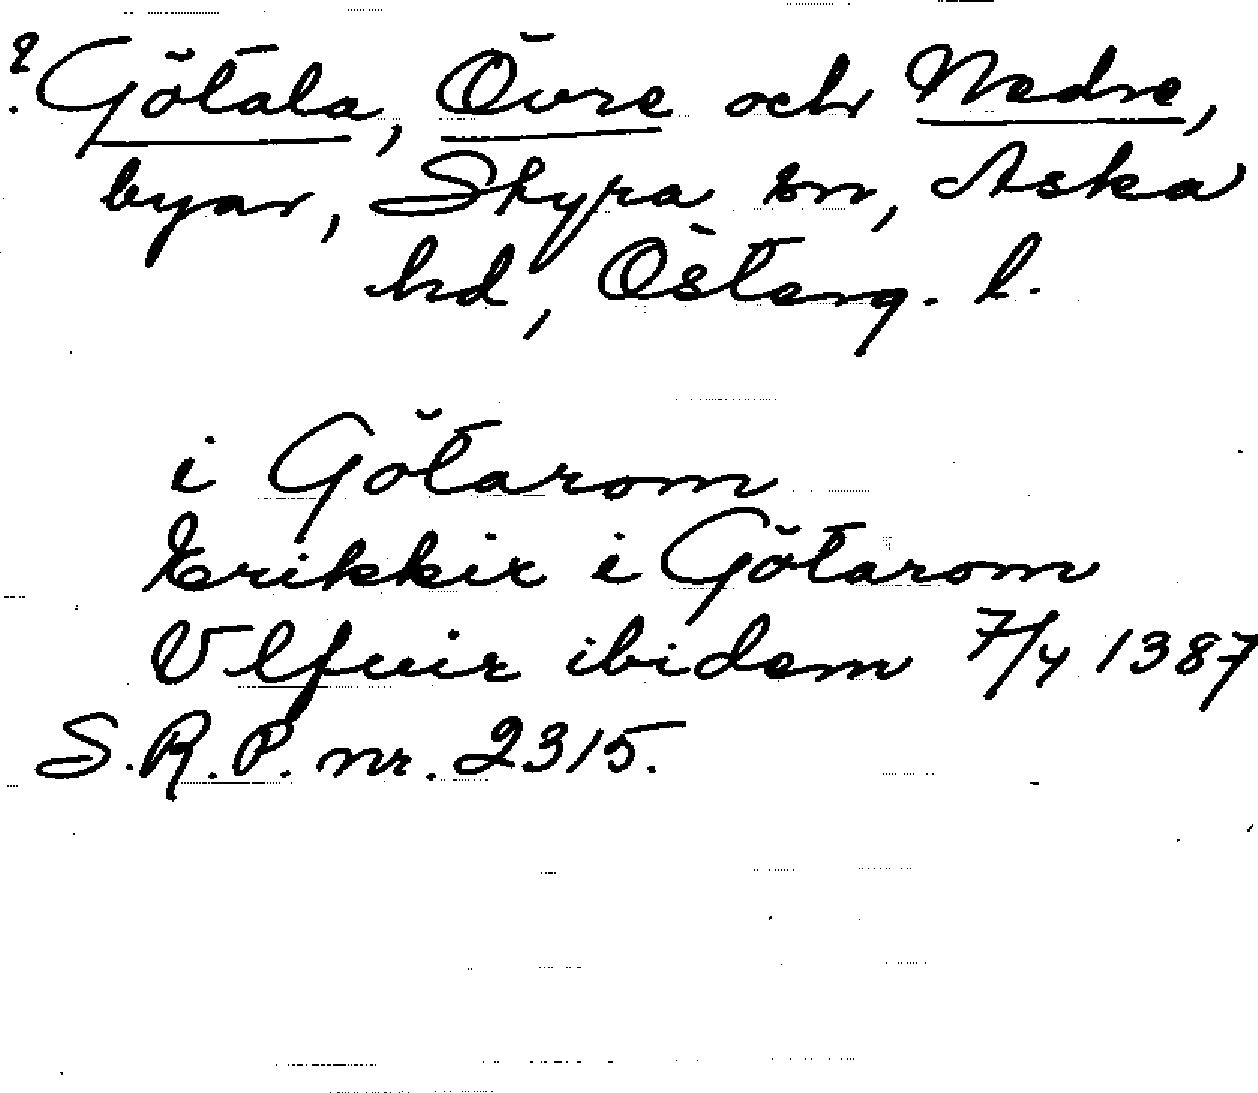 ? Götala, Övre och Nedre,
byar, Styra sn, Aska
hd, Österg. l.
i Götarom
Erikkir i Götarom
Vlfuir ibidem 7/4 1387
S.R.P. nr. 2315.